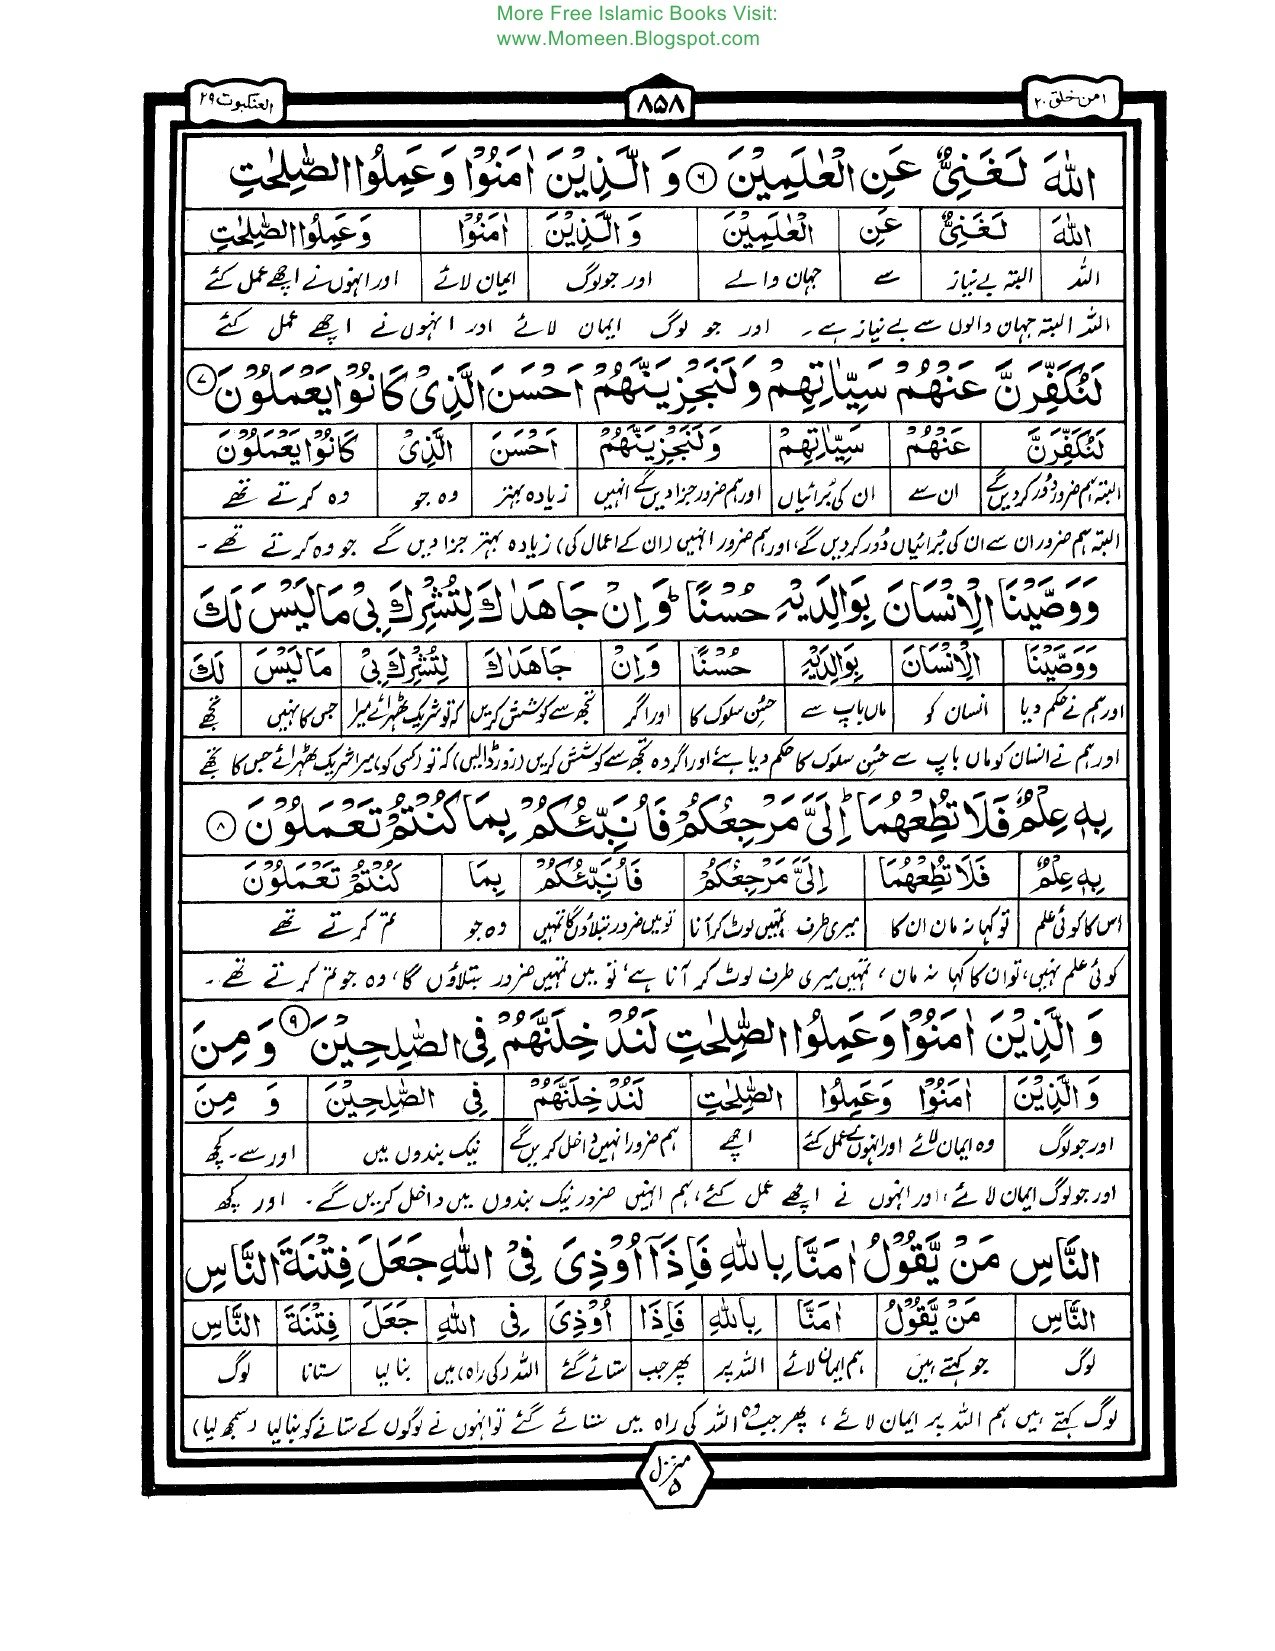 More Free Islamic Books Visit:
www.Momeen.Blogspot.com
امن خلق ۲۰ ۸۵۸ العنکبوت ۲۹
اللّٰهَ لَغَنِیٌّ عَنِ الْعٰلَمِیْنَ ۶ وَ الَّذِیْنَ اٰمَنُوْا وَ عَمِلُوا الصّٰلِحٰتِ
اللّٰهَ لَغَنِیٌّ عَنِ الْعٰلَمِیْنَ وَ الَّذِیْنَ اٰمَنُوْا وَ عَمِلُوا الصّٰلِحٰتِ
اللہ البتہ بے نیاز سے جہان والے اور جو لوگ ایمان لائے اور انہوں نے اچھے عمل کئے
اللہ البتہ جہان والوں سے بے نیاز ہے۔ اور جو لوگ ایمان لائے اور انہوں نے اچھے عمل کئے
لَنُكَفِّرَنَّ عَنْهُمْ سَیِّاٰتِهِمْ وَ لَنَجْزِیَنَّهُمْ اَحْسَنَ الَّذِیْ كَانُوْا یَعْمَلُوْنَ ۷
لَنُكَفِّرَنَّ عَنْهُمْ سَیِّاٰتِهِمْ وَ لَنَجْزِیَنَّهُمْ اَحْسَنَ الَّذِیْ كَانُوْا یَعْمَلُوْنَ
البتہ ہم ضرور دور کر دیں گے ان سے ان کی بُرائیاں اور ہم ضرور جزا دیں گے انہیں زیادہ بہتر وہ جو وہ کرتے تھے
البتہ ہم ضرور ان سے ان کی بُرائیاں دُور کر دیں گے، اور ہم ضرور انہیں (ان کے اعمال کی) زیادہ بہتر جزا دیں گے جو وہ کرتے تھے۔
وَ وَصَّیْنَا الْاِنْسَانَ بِوَالِدَیْهِ حُسْنًاؕ وَ اِنْ جَاهَدٰكَ لِتُشْرِكَ بِیْ مَا لَیْسَ لَكَ
وَ وَصَّیْنَا الْاِنْسَانَ بِوَالِدَیْهِ حُسْنًا وَ اِنْ جَاهَدٰكَ لِتُشْرِكَ بِیْ مَا لَیْسَ لَكَ
اور ہم نے حکم دیا انسان کو ماں باپ سے حُسنِ سلوک کا اور اگر تجھ سے کوشش کریں کہ تو شریک ٹھہرائے میرا جس کا نہیں تجھے
اور ہم نے انسان کو ماں باپ سے حُسنِ سلوک کا حکم دیا ہے اور اگر وہ تجھ سے کوشش کریں (زور ڈالیں) کہ تو (کسی کو) میرا شریک ٹھہرائے جس کا تجھے
بِهٖ عِلْمٌ فَلَا تُطِعْهُمَاؕ اِلَیَّ مَرْجِعُكُمْ فَاُنَبِّئُكُمْ بِمَا كُنْتُمْ تَعْمَلُوْنَ ۸
بِهٖ عِلْمٌ فَلَا تُطِعْهُمَا اِلَیَّ مَرْجِعُكُمْ فَاُنَبِّئُكُمْ بِمَا كُنْتُمْ تَعْمَلُوْنَ
اس کا کوئی علم تو کہا نہ مان ان کا میری طرف تمہیں لوٹ کر آنا تو میں ضرور بتلاؤں گا تمہیں وہ جو تم کرتے تھے
کوئی علم نہیں، تو ان کا کہا نہ مان، تمہیں میری طرف لوٹ کر آنا ہے، تو میں تمہیں ضرور بتلاؤں گا، وہ جو تم کرتے تھے۔
وَ الَّذِیْنَ اٰمَنُوْا وَ عَمِلُوا الصّٰلِحٰتِ لَنُدْخِلَنَّهُمْ فِی الصّٰلِحِیْنَ ۹ وَ مِنَ
وَ الَّذِیْنَ اٰمَنُوْا وَ عَمِلُوا الصّٰلِحٰتِ لَنُدْخِلَنَّهُمْ فِی الصّٰلِحِیْنَ وَ مِنَ
اور جو لوگ وہ ایمان لائے اور انہوں نے عمل کئے اچھے ہم ضرور انہیں داخل کریں گے نیک بندوں میں اور سے۔ کچھ
اور جو لوگ ایمان لائے، اور انہوں نے اچھے عمل کئے، ہم انہیں ضرور نیک بندوں میں داخل کریں گے۔ اور کچھ
النَّاسِ مَنْ یَّقُوْلُ اٰمَنَّا بِاللّٰهِ فَاِذَاۤ اُوْذِیَ فِی اللّٰهِ جَعَلَ فِتْنَةَ النَّاسِ
النَّاسِ مَنْ یَّقُوْلُ اٰمَنَّا بِاللّٰهِ فَاِذَا اُوْذِیَ فِی اللّٰهِ جَعَلَ فِتْنَةَ النَّاسِ
لوگ جو کہتے ہیں ہم ایمان لائے اللہ پر پھر جب ستائے گئے اللہ (کی راہ) میں بنا لیا ستانا لوگ
لوگ کہتے ہیں ہم اللہ پر ایمان لائے، پھر جب وہ اللہ کی راہ میں ستائے گئے تو انہوں نے لوگوں کے ستانے کو بنا لیا (سمجھ لیا)
منزل ۵